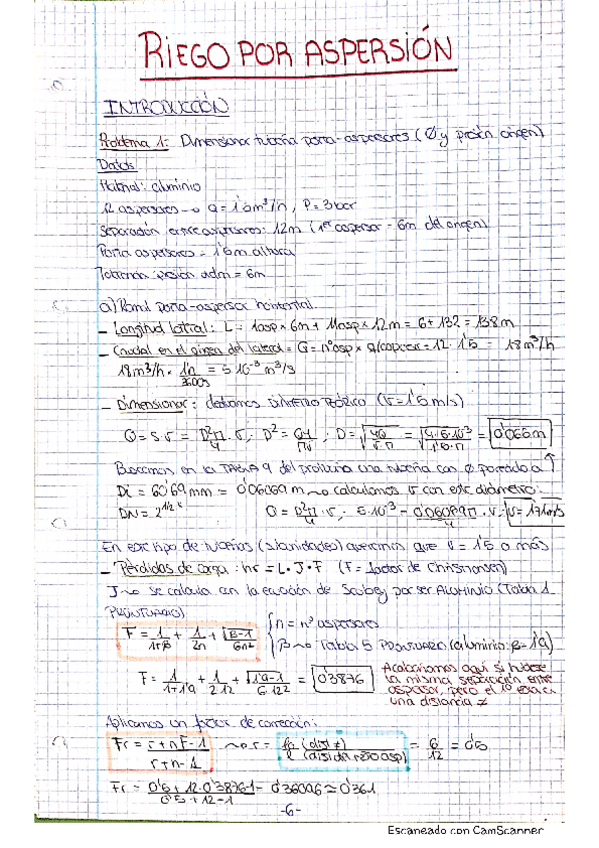 RIEGO POR ASPERSIÓN
INTRODUCCIÓN
Problema 1: Dimensionar tubería porta-aspersores (Ø y presión origen)
Datos
Material: aluminio
12 aspersores → q = 1'5 m³/h, P = 3 bar
Separación entre aspersores: 12m (1er aspersor - 6m del origen)
Porta aspersores = 1'5m altura
Tolerancia presión adm = 6m
a) Ramal porta-aspersor horizontal
- Longitud lateral: L = 1asp × 6m + 11asp × 12m = 6 + 132 = 138m
- Caudal en el origen del lateral = Q = nº asp × q/aspersor = 12 · 1'5 = 18m³/h
18m³/h × 1h/3600s = 5·10⁻³ m³/s
- Dimensionar: calculamos DIÁMETRO TEÓRICO (v = 1'5 m/s)
Q = S·v = D²π/4 · v; D² = Q4/πv; D = √4Q/v·π = √4·5·10⁻³/1'5·π = 0'065m
Buscamos en la TABLA 9 del prontuario una tubería con Ø parecido a ↑
Di = 60'69 mm = 0'06069 m → calculamos v con este diámetro:
DN = 2 1/2" Q = D²π/4 · v; 5·10⁻³ = 0'06069²π/4 · v; v = 1'71m/s
En este tipo de tuberías queremos que v = 1'5 o más
- Pérdidas de carga: hr = L · J · F (F = factor de Christiansen)
J → se calcula con la ecuación de Scobey por ser ALUMINIO (Tabla 1
PRONTUARIO)
F = 1/1+β + 1/2n + √β-1/6n²
n = nº aspersores
β → Tabla 5 PRONTUARIO (aluminio: β = 1'9)
F = 1/1+1'9 + 1/2·12 + √1'9-1/6·12² = 0'3876
Acabaríamos aquí si hubiese
la misma separación entre
aspersor, pero el 1º está a
una distancia ≠
Aplicamos un factor de corrección:
Fr = r+nF-1/r+n-1 → r = l₀ (dist ≠)/l (dist del resto asp) = 6/12 = 0'5
Fr = 0'5 + 12·0'3876-1/0'5+12-1 = 0'36096 ≈ 0'361
-6-
Escaneado con CamScanner